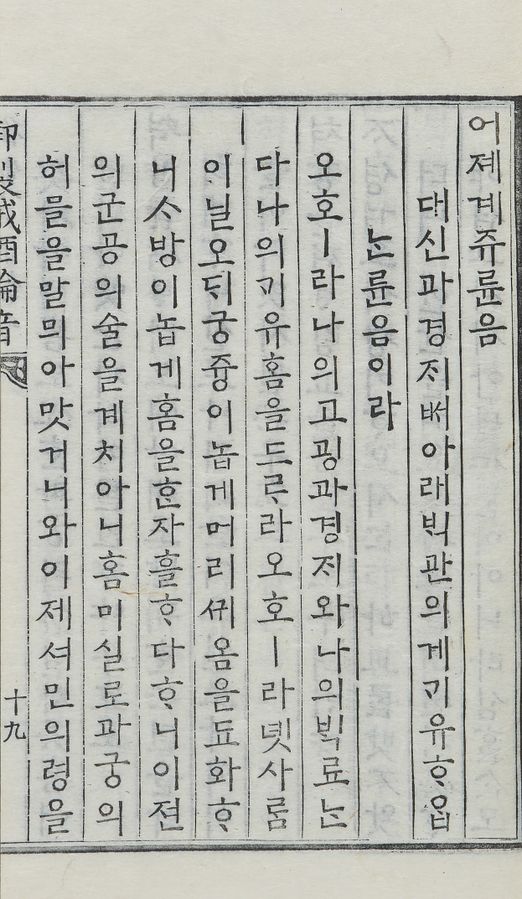 어졔계쥬륜음
대신과경ᄌᆡᄡᅥ아래ᄇᆡᆨ관의게ᄀᆡ유ᄒᆞᄋᆞᆸ
ᄂᆞᆫ륜음이라
오호ㅣ라나의고굉과경ᄌᆡ와나의ᄇᆡᆨ료ᄂᆞᆫ
다나의ᄀᆡ유홈을드르라오호ㅣ라녯사ᄅᆞᆷ
이닐오ᄃᆡ궁즁이놉게머리ᄭᅱ옴을됴화ᄒᆞ
니ᄉᆞ방이놉게홈을ᄒᆞᆫ자흘ᄒᆞ다ᄒᆞ니이젼
의군공의술을계치아니홈미실로과궁의
허믈을말믜아맛거니와이제셔민의령을
御製戒酒綸音
十九